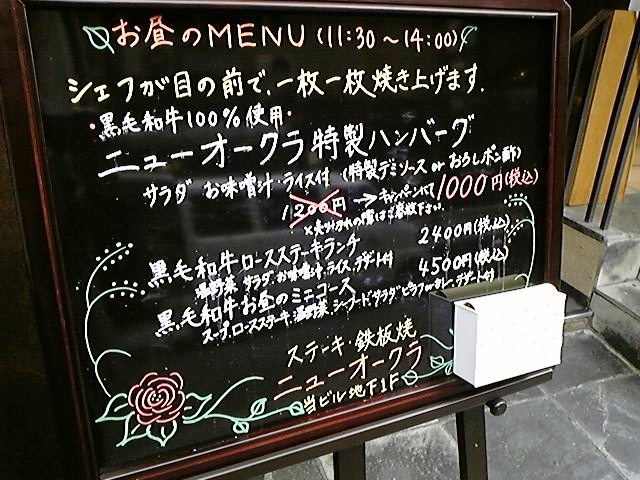 お昼のMENU(11:30～14:00)
シェフが目の前で、一枚一枚焼き上げます.
・黒毛和牛100%使用・
ニューオークラ特製ハンバーグ
サラダ お味噌汁・ライス付 (特製デミソース or おろしポン酢)
1200円→キャンペーンにて1000円(税込)
※売り切れの際はご容赦下さい。
黒毛和牛ロースステーキランチ 2400円(税込)
温野菜、サラダ、お味噌汁、ライス、デザート付
黒毛和牛お昼のミニコース 4500円(税込)
スープ、ロースステーキ、温野菜、シーフード、サラダ ピラフorカレー、デザート付
ステーキ・鉄板焼
ニューオークラ
当ビル地下1F